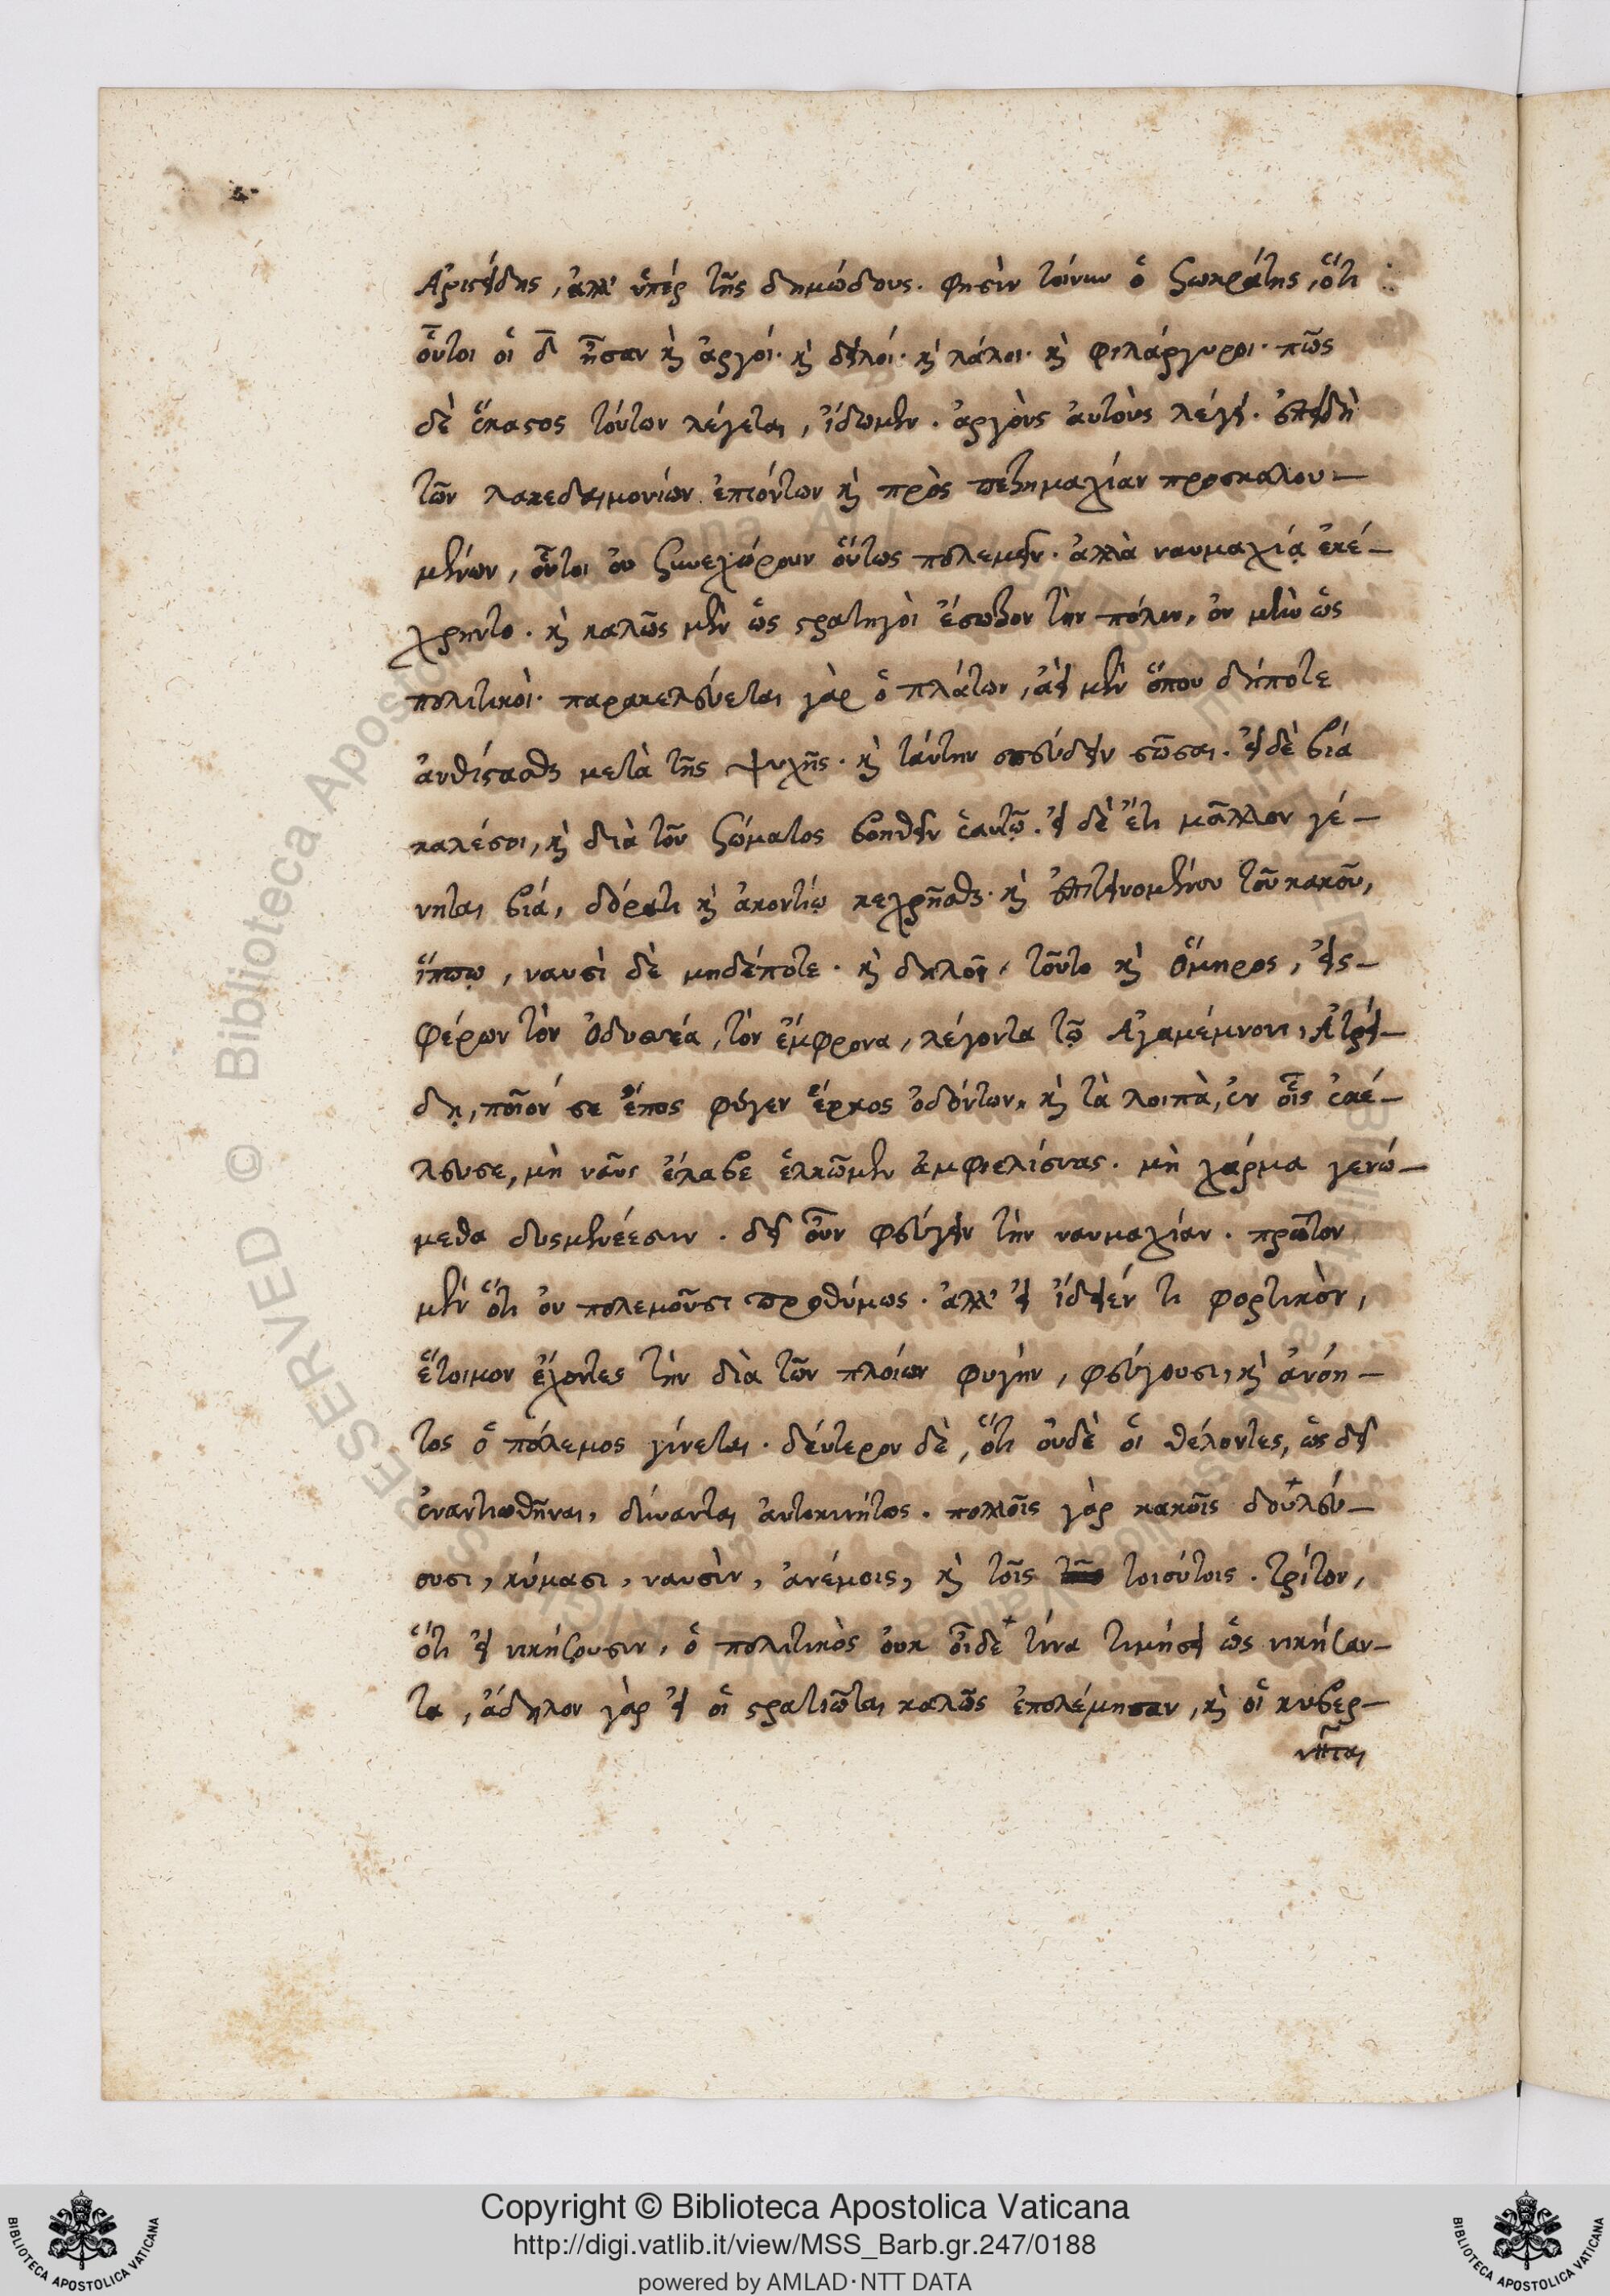 Ἀριστείδης, ἀλλ' ὑπέρ τῆς δημώδους. φησὶν τοίνυν ὁ Σωκράτης, ὅτι
οὗτοι οἱ δ̄ ἦσαν κὴ ἀργοί· κὴ δειλοί· κὴ λάλοι· κὴ φιλάργυροι· πῶς
δὲ ἕκαστος τούτων λέγεται, ἴδωμεν. ἀργοὺς ἀυτοὺς λέγει. ἐπειδὴ
τῶν λακεδαιμονίων ἐπιόντων κὴ πρὸς πεζημαχίαν προσκαλου-
μένων, οὗτοι ὀυ συνεχώρουν οὕτως πολεμεῖν. ἀλλὰ ναυμαχίᾳ ἐκέ-
χρηντο. κὴ καλῶς μὲν ὡς στρατηγοὶ ἔσωζον τὴν πόλιν, ὀυ μὴν ὡς
πολιτικοὶ. παρακελεύεται γὰρ ὁ πλάτων, ἀεὶ μὲν ὅπου δήποτε
ἀνθίστασθαι μετὰ τῆς ψυχῆς. κὴ ταύτην σπεύδειν σῶσαι. εἰ δὲ βιά
καλέσοι, κὴ διὰ τοῦ σώματος βοηθεῖν ἑαυτῷ. εἰ δὲ ἔτι μᾶλλον γέ-
νηται βιά, δόρατι κὴ ἀκοντίῳ κεχρῆσθαι. κὴ ἐπιτεινομένου τοῦ κακοῦ,
ἵππῳ, ναυσὶ δὲ μηδέποτε. κὴ δηλοῖ τοῦτο κὴ Ὅμηρος, εἰς-
φέρων τὸν Ὀδυσσέα, τὸν ἔμφρονα, λέγοντα τῷ Ἀγαμέμνονι, Ἀτρεί-
δη, ποῖόν σε ἔπος φύγεν ἕρκος ὀδόντων, κὴ τὰ λοιπὰ, ἐν οἷς ἐκέ-
λευσε, μὴ νᾶυς ἅλαβε ἑλκῶμεν ἀμφιελίσσας. μὴ χάρμα γενώ-
μεθα δυσμενέεσιν. δεῖ οὖν φεύγειν τὴν ναυμαχίαν. πρῶτον
μὲν ὅτι ὀυ πολεμοῦσι προθύμως. ἀλλ' εἰ ἴδειέν τι φορτικὸν,
ἕτοιμον ἔχοντες τὴν διὰ τῶν πλοίων φυγὴν, φεύγουσι, κὴ ἀνόη-
τος ὁ πόλεμος γίνεται. δέυτερον δὲ, ὅτι ὀυδὲ οἱ θέλοντες, ὡς δεῖ
ἐναντιωθῆναι, δύνανται ἀυτοκινήτως. πολλοῖς γὰρ κακοῖς δουλεύ-
ουσι, κύμασι, ναυσὶν, ἀνέμοις, κὴ τοῖς τοιούτοις. τρίτον,
ὅτι εἰ νικήσουσιν, ὁ πολιτικὸς ὀυκ οἶδε τίνα τιμήσει ὡς νικήσαν-
τα, ἄδηλον γὰρ εἰ οἱ στρατιῶται καλῶς ἐπολέμησαν, κὴ οἱ κυβερ-
νῆται
Copyright © Biblioteca Apostolica Vaticana
http://digi.vatlib.it/view/MSS_Barb.gr.247/0188
powered by AMLAD·NTT DATA